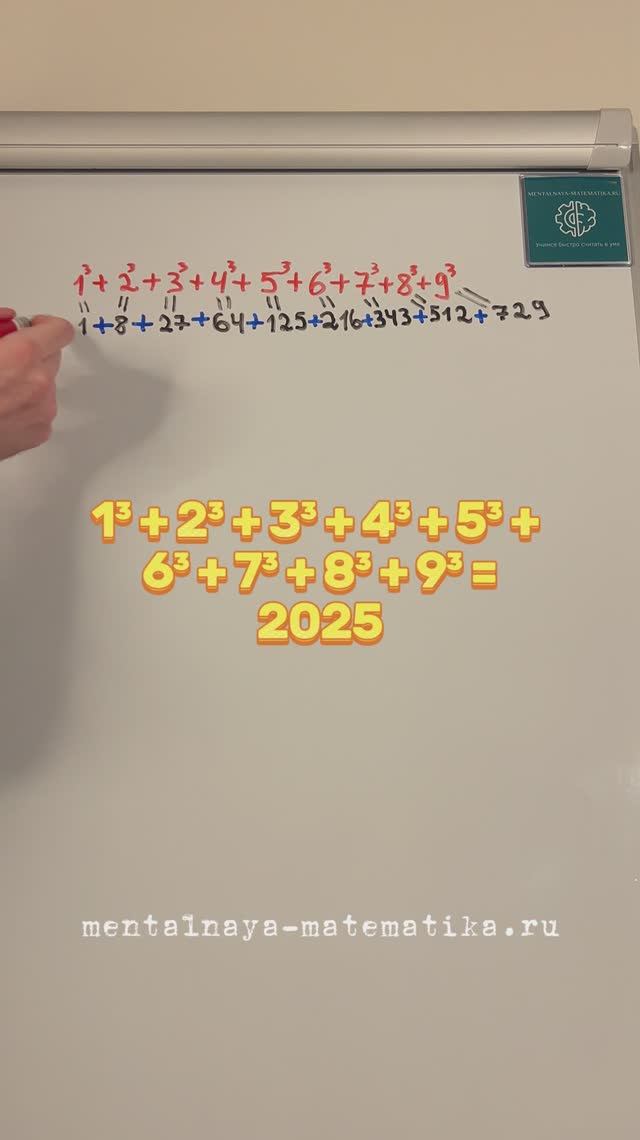 MENTALNAYA-MATEMATIKA.RU
Учимся быстро считать в уме
1³+2³+3³+4³+5³+6³+7³+8³+9³
1+8+27+64+125+216+343+512+729
1³+2³+3³+4³+5³+
6³+7³+8³+9³=
2025
mentalnaya-matematika.ru